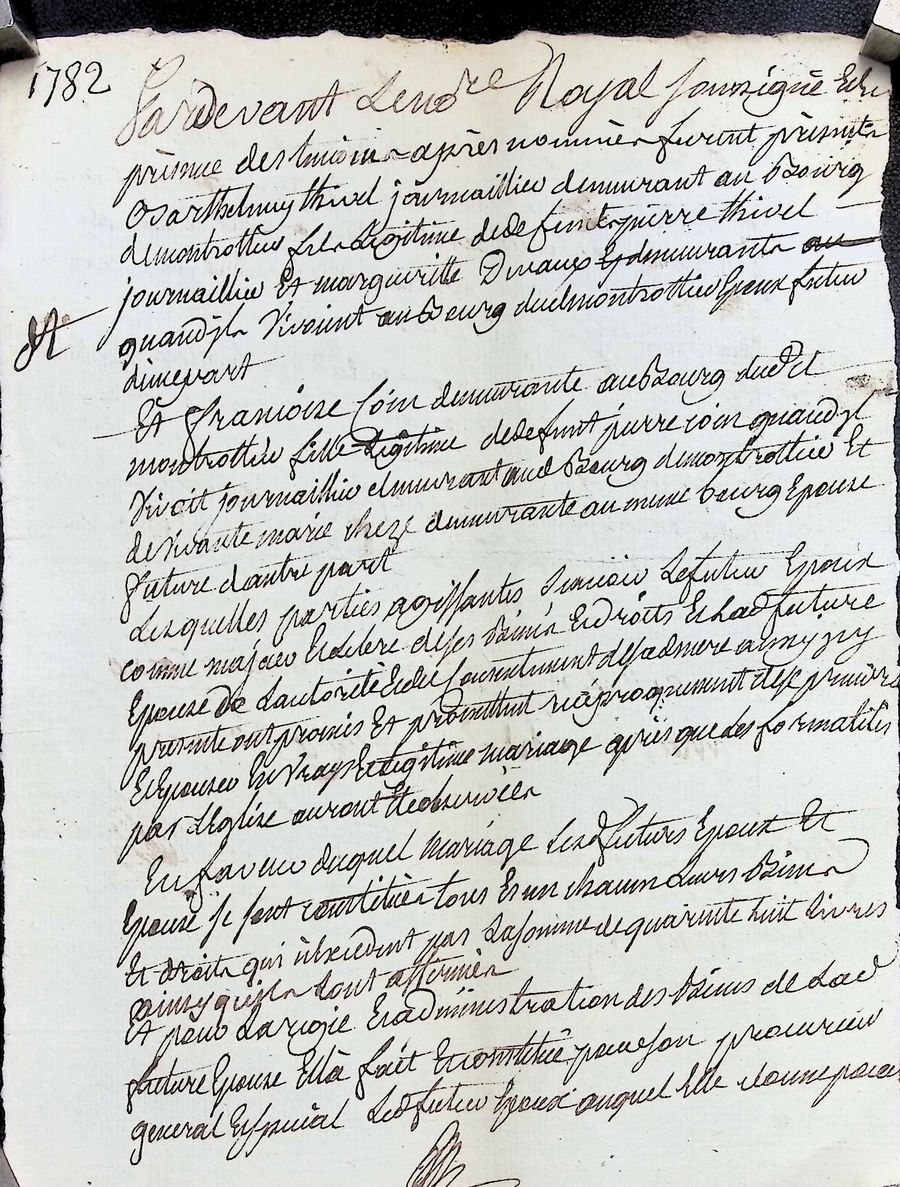 1782
Pardevant Lenore Royal soussigné Et En
présence des témoins après nommés furent présents
Barthelmy thivel journaillier demeurant au Bourg
de montrottier fils Légitime de defunts pierre thivel
journaillier Et margueritte Duvaux demeurants
quand ils vivoient au Bourg dud montrottier Epoux futur
d'une part
Et françoise Coin demeurante au Bourg dud
montrottier fille Légitime de defunt pierre coin quand il
vivoit journaillier demeurant aud Bourg de montrottier Et
de vivante marie cheze demeurante au meme bourg Epouse
future d'autre part
Lesquelles parties agissantes sçavoir Le futur Epoux
comme majeur Et Libre de ses Biens Et droits Et Lad future
Epouse de L'autorité Et du Consentement de sad mere ainsy icy
presente ont promis Et promettent réciproquement de se prendre
Et Epouser En vray Et Légitime mariage après que des formalités
par L'église auront Eté observées
En faveur duquel mariage Lesd futurs Epoux Et
Epouse se sont constitués tous Et un chacun Leurs Biens
Et droits qui n'excedent pas La somme de quarente huit Livres
ainsy qu'ils L'ont affirmés
Et pour La regie Et administration des Biens de Lad
future Epouse Ella fait Et constitué pour son procureur
general Et special Led futur Epoux auquel Elle donne pouvoir